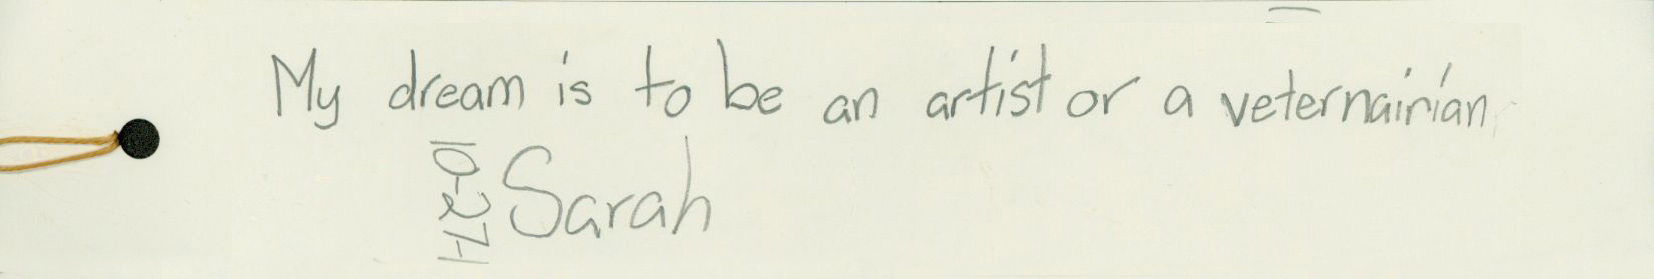 My dream is to be an artist or a veternairian
Sarah